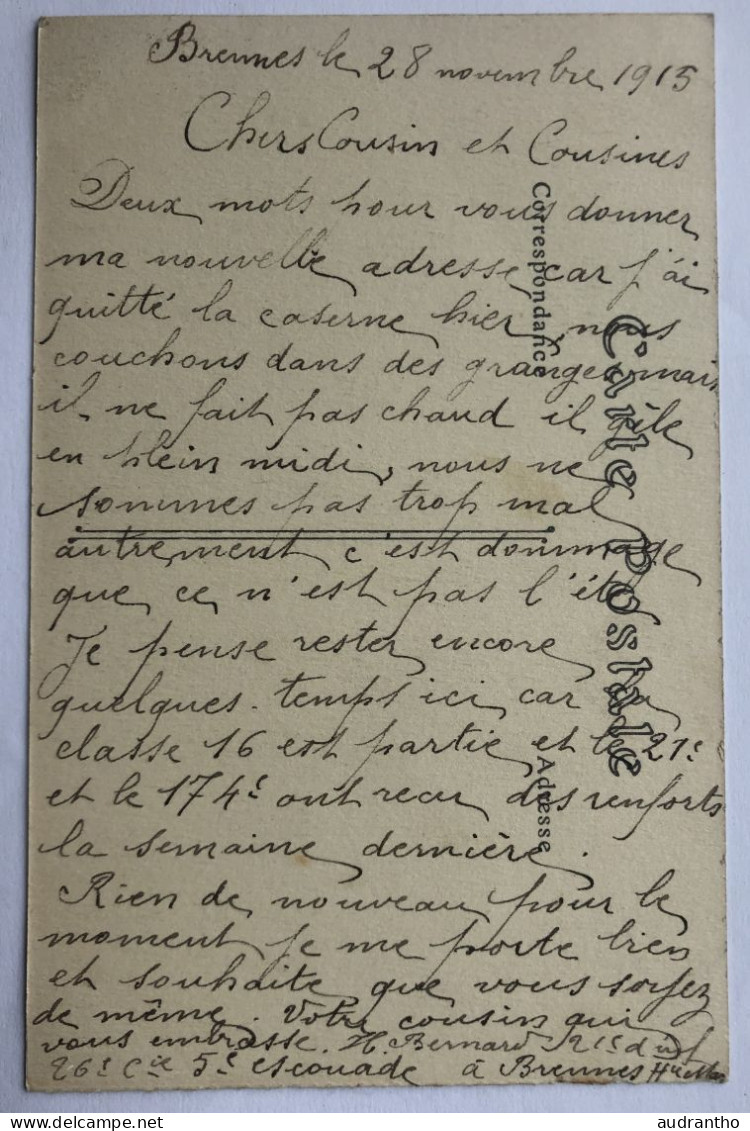 Brennes le 28 novembre 1915
Chers Cousin et Cousines
Deux mots pour vous donner
ma nouvelle adresse car j'ai
quitté la caserne hier, nous
couchons dans des granges mais
il ne fait pas chaud il gèle
en plein midi, nous ne
sommes pas trop mal
autrement c'est dommage
que ce n'est pas l'été
Je pense rester encore
quelques temps ici car la
classe 16 est partie et le 21e
et le 174e ont reçu des renforts
la semaine dernière.
Rien de nouveau pour le
moment je me porte bien
et souhaite que vous soyez
de même. Votre cousin qui
vous embrasse. H. Bernard 21e d'inf
26e Cie 5e escouade à Brennes Hte Mar
Carte Postale
Correspondance
Adresse
www.delcampe.net
audrantho